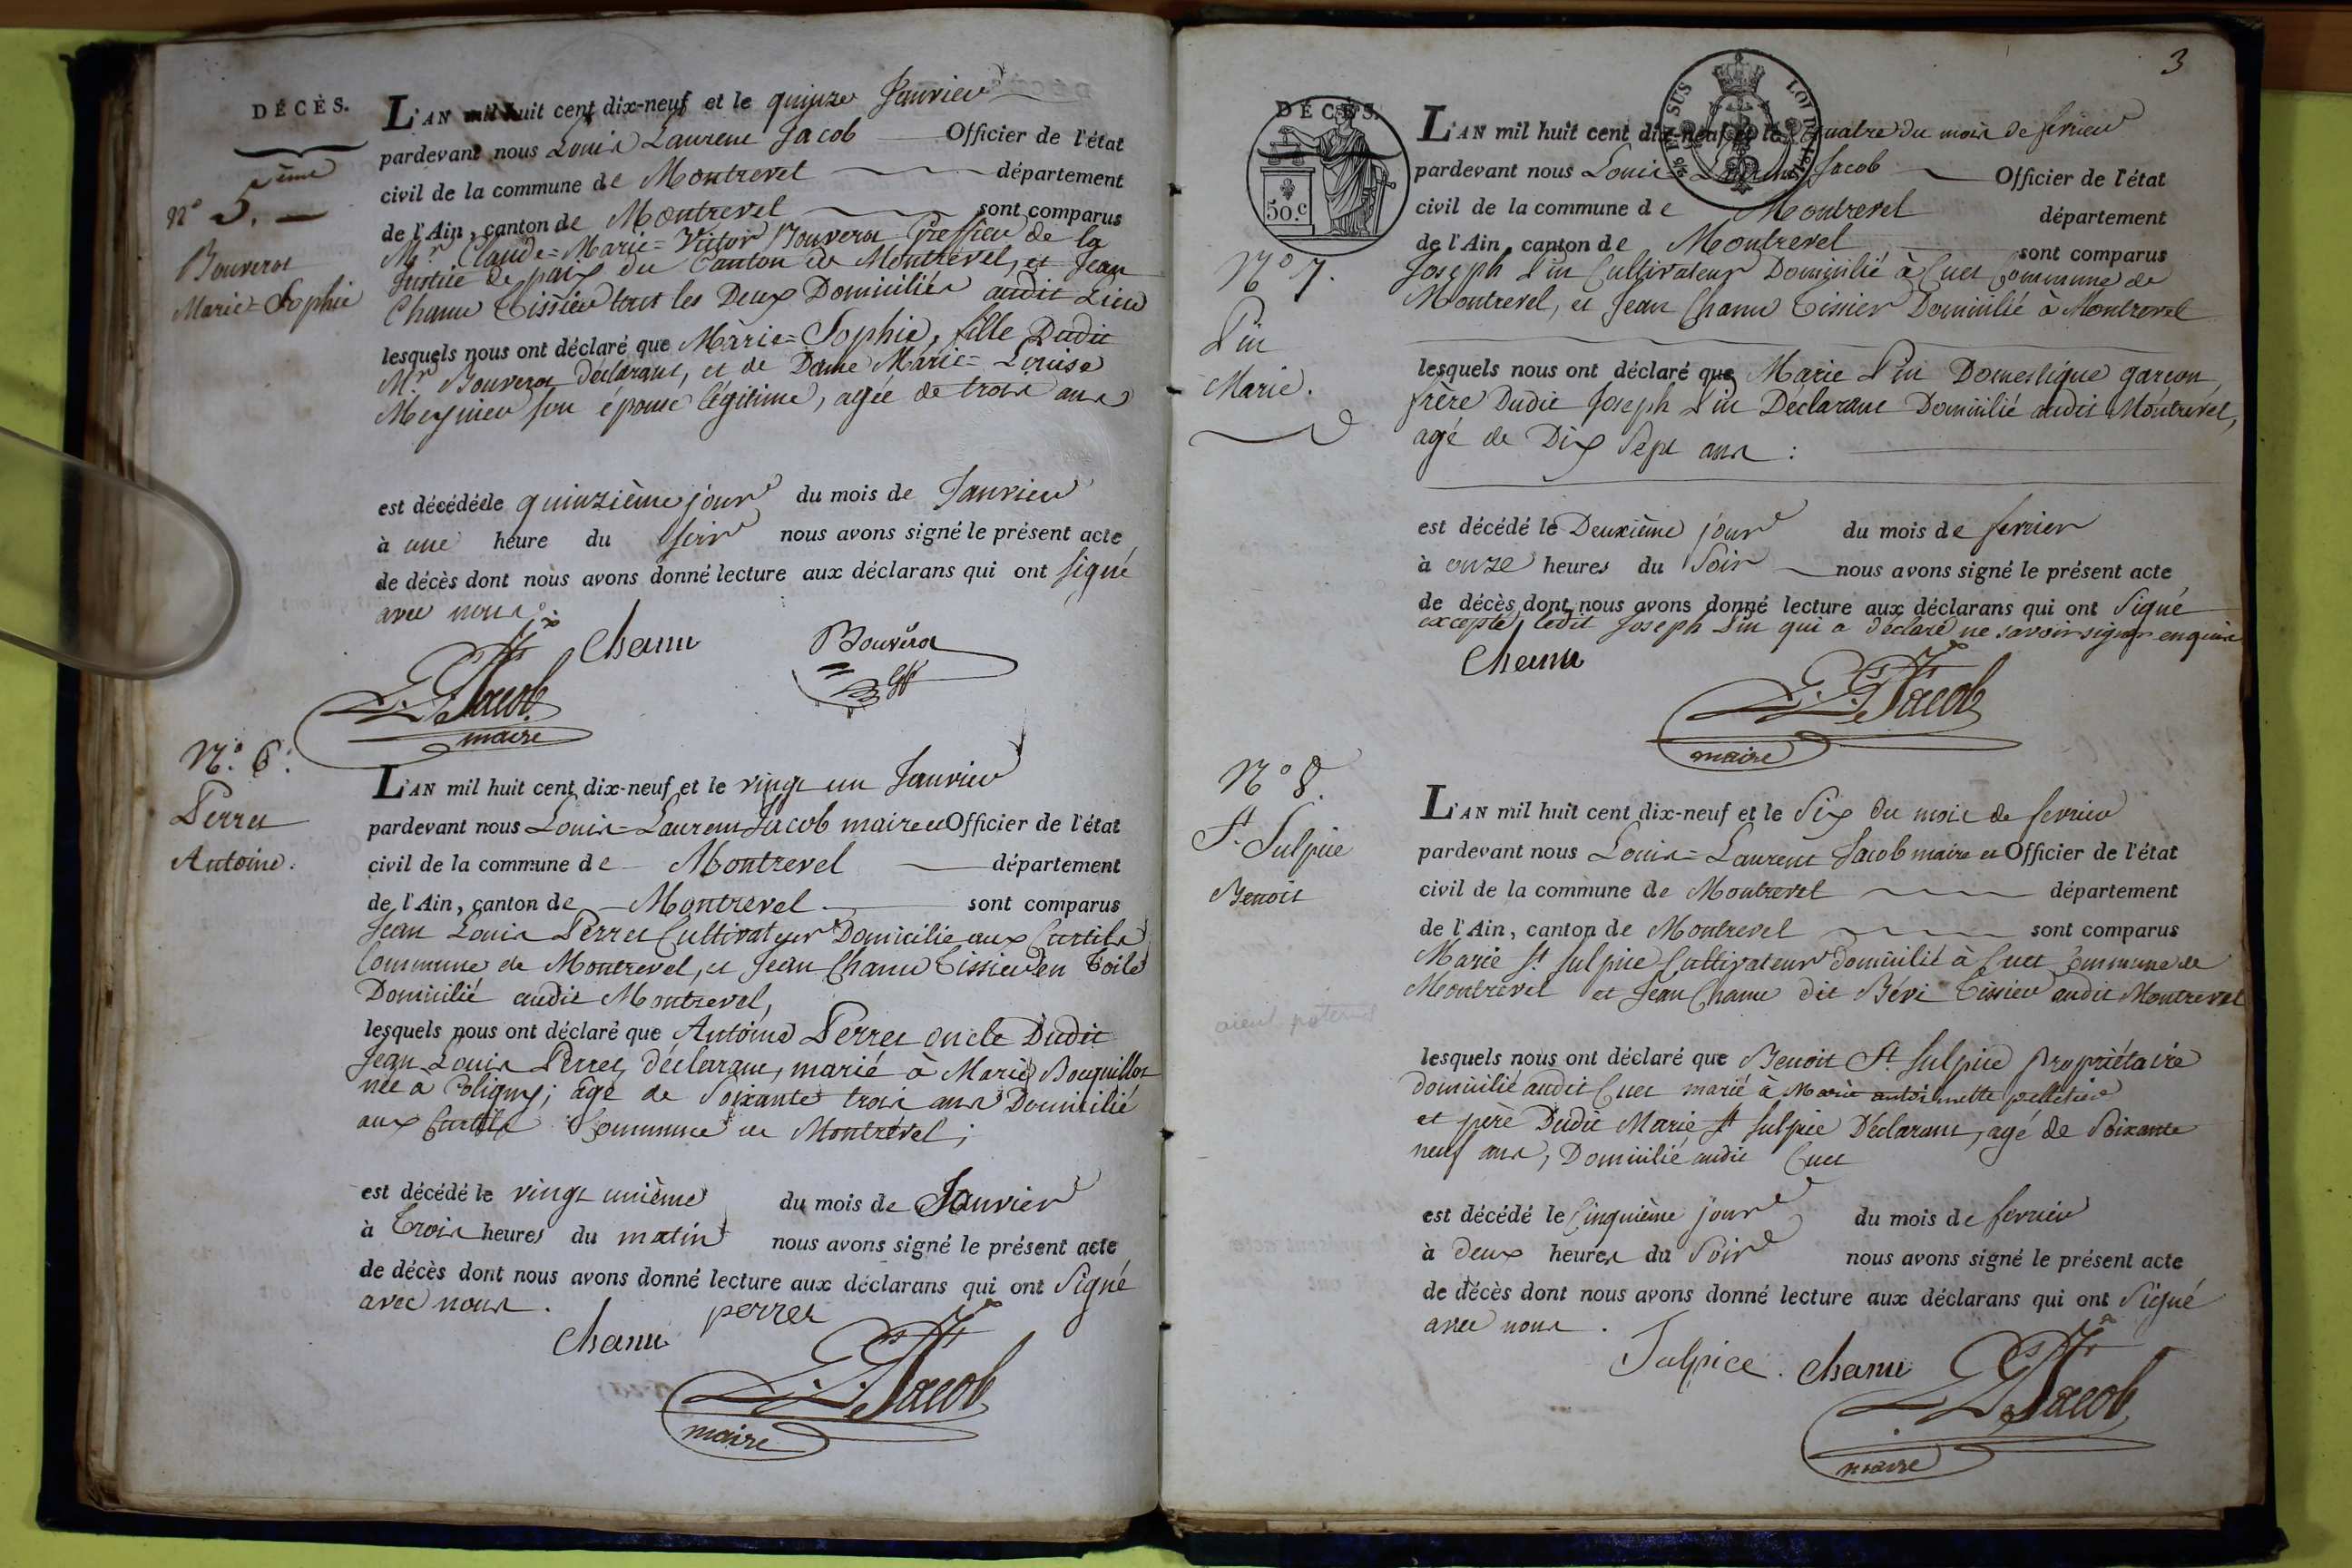 DÉCÈS.
N° 5.ème
Bouverot
Marie=Sophie
L'AN mil huit cent dix-neuf et le quinze Janvier
pardevant nous Louis Laurent Jacob Officier de l'état
civil de la commune de Montrevel département
de l'Ain, canton de Montrevel sont comparus
Mr. Claude=Marie=Victor Bouverot Greffier de la
Justice de paix du Canton de Montrevel, et Jean
Chanu Tissier tout les Deux Domiciliés audit Lieu
lesquels nous ont déclaré que Marie=Sophie, fille Dudit
Mr. Bouverot déclarant, et de Dame Marie=Louise
son épouse légitime, agée de trois ans
est décédée le quinzième jour du mois de Janvier
à une heure du soir nous avons signé le présent acte
de décès dont nous avons donné lecture aux déclarans qui ont signé
avec nous
Chanu Bouverot
L. L. Jacob
maire
N.° 6.
Perret
Antoine.
L'AN mil huit cent dix-neuf et le vingt un Janvier
pardevant nous Louis=Laurent Jacob maire et Officier de l'état
civil de la commune de Montrevel département
de l'Ain, canton de Montrevel sont comparus
Jean Louis Perret Cultivateur Domicilié aux Curtils
Commune de Montrevel, et Jean Chanu Tissier en Toile
Domicilié audit Montrevel,
lesquels nous ont déclaré que Antoine Perret oncle Dudit
Jean Louis Perret, déclarant, marié à Marie Bouquillot
née à Poligny; agé de Soixante trois ans Domicilié
aux Curtils Commune de Montrevel;
est décédé le vingt unième du mois de Janvier
à Trois heures du matin nous avons signé le présent acte
de décès dont nous avons donné lecture aux déclarans qui ont Signé
avec nous.
Chanu perret
L. L. Jacob
maire
3
DÉCÈS.
50.c
N° 7.
Pin
Marie.
L'AN mil huit cent dix-neuf et le quatre du mois de fevrier
pardevant nous Louis Laurent Jacob Officier de l'état
civil de la commune de Montrevel département
de l'Ain, canton de Montrevel sont comparus
Joseph Pin Cultivateur Domicilié à Cuet Commune de
Montrevel, et Jean Chanu Tissier Domicilié à Montrevel
lesquels nous ont déclaré que Marie Pin Domestique garçon,
frère Dudit Joseph Pin Déclarant Domicilié audit Montrevel,
agé de Dix Sept ans :
est décédé le Deuxième jour du mois de fevrier
à onze heures du Soir nous avons signé le présent acte
de décès dont nous avons donné lecture aux déclarans qui ont Signé
excepté ledit Joseph Pin qui a déclaré ne savoir signer enquis
Chanu
L. L. Jacob
maire
N° 8.
St. Sulpice
Benoit
aieul paternel
L'AN mil huit cent dix-neuf et le Six du mois de fevrier
pardevant nous Louis=Laurent Jacob maire et Officier de l'état
civil de la commune de Montrevel département
de l'Ain, canton de Montrevel sont comparus
Marie St. Sulpice Cultivateur domicilié à Cuet Commune de
Montrevel et Jean Chanu dit Bévi Tissier audit Montrevel
lesquels nous ont déclaré que Benoit St. Sulpice Propriétaire
domicilié audit Cuet marié à Marie antoinette pelletier
et père Dudit Marie St Sulpice Déclarant, agé de Soixante
neuf ans, Domicilié audit Cuet
est décédé le Cinquième jour du mois de fevrier
à Deux heures du Soir nous avons signé le présent acte
de décès dont nous avons donné lecture aux déclarans qui ont Signé
avec nous.
Sulpice. Chanu
L. L. Jacob
maire